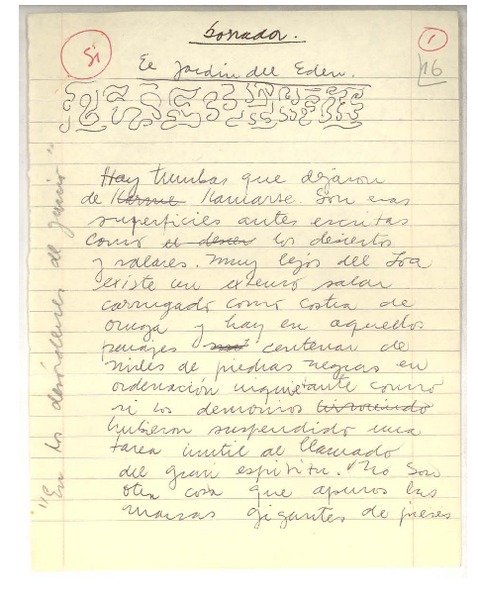 Borrador.
Si
1
16
El Jardín del Eden.
"En los desórdenes de junio"
Hay tumbas que dejaron
de llamarse llamarse. Son esas
superficies antes escritas
como el desier los desiertos
y salares. Muy lejos del Loa
existe un extenso salar
carrugado como costra de
oruga y hay en aquellos
parajes centenar de
miles de piedras negras en
ordenación inquietante como
si los demonios
hubieron suspendido una
tarea inutil al llamado
del gran espiritu. No son
otra cosa que apuros las
gigantes de